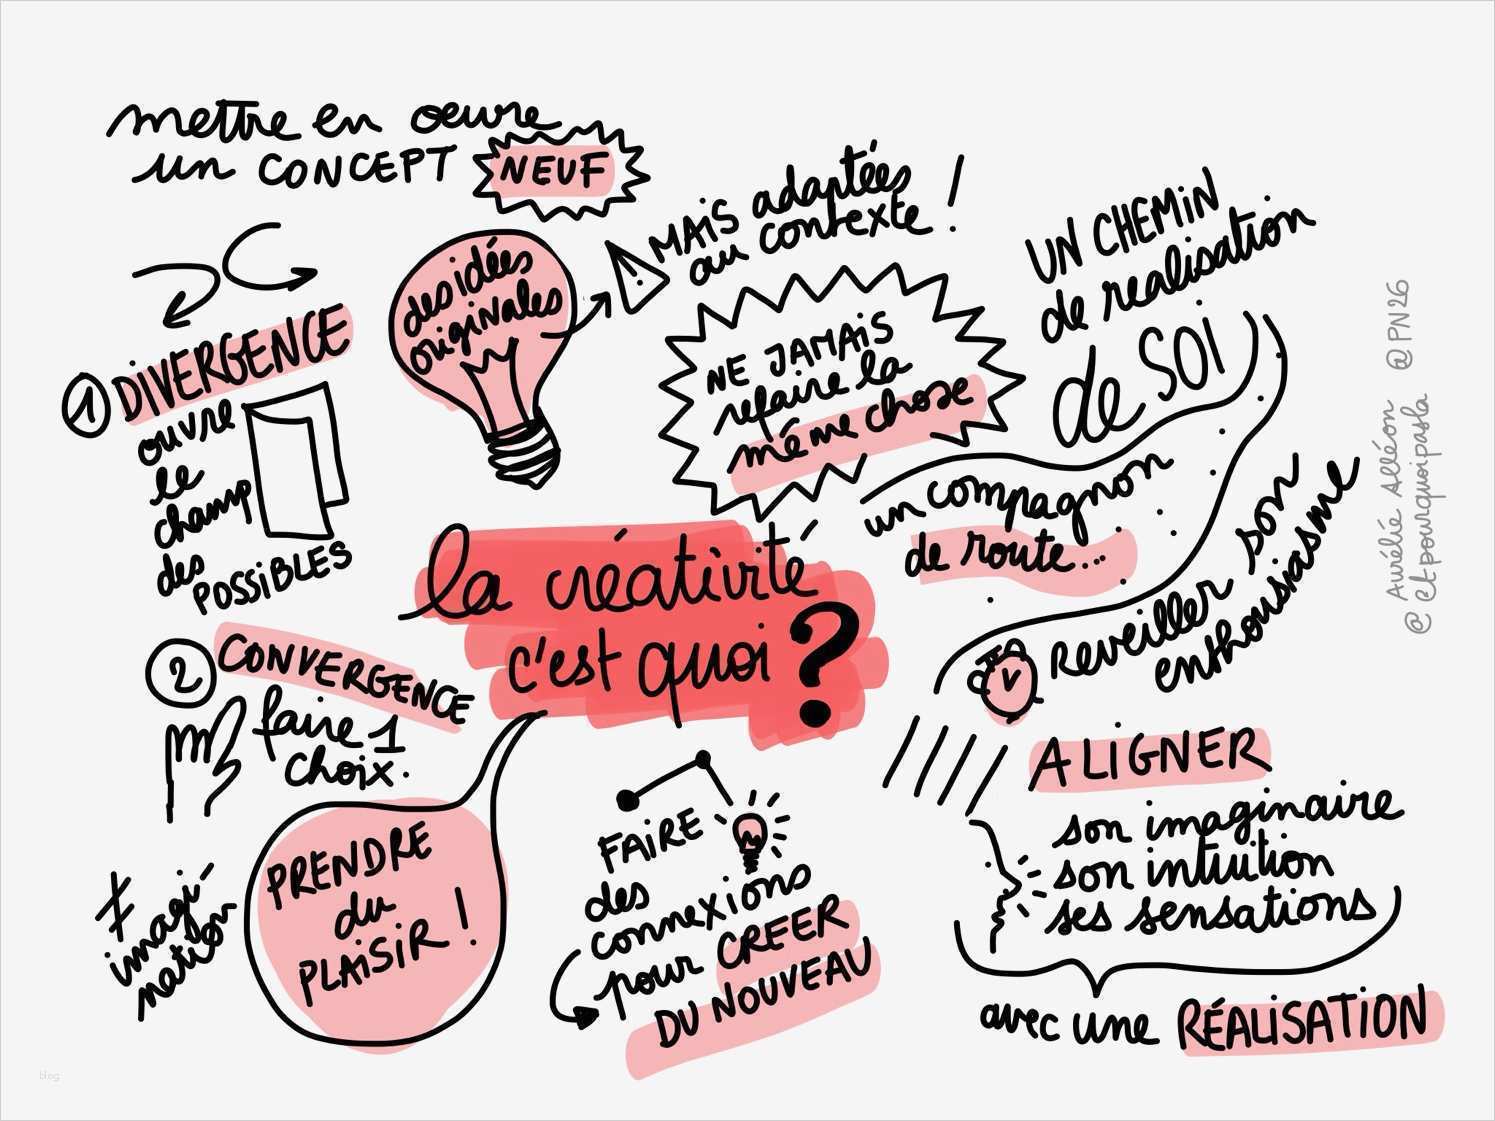 mettre en oeuvre
un CONCEPT NEUF
1 DIVERGENCE
ouvre
le
champ
des
POSSIBLES
des idées
originales
! MAIS adaptées
au contexte !
NE JAMAIS
refaire la
même chose
UN CHEMIN
de realisation
de SOI
un compagnon
de route...
la créativité
c'est quoi ?
2 CONVERGENCE
faire 1
choix.
≠
imagi-
nation
PRENDRE
du
PLAISIR !
FAIRE
des
connexions
pour CREER
DU NOUVEAU
REVEILLER son
enthousiasme
ALIGNER
son imaginaire
son intuition
ses sensations
avec une RÉALISATION
Aurélie Alléon @PN26
@etpourquoipasla
blog